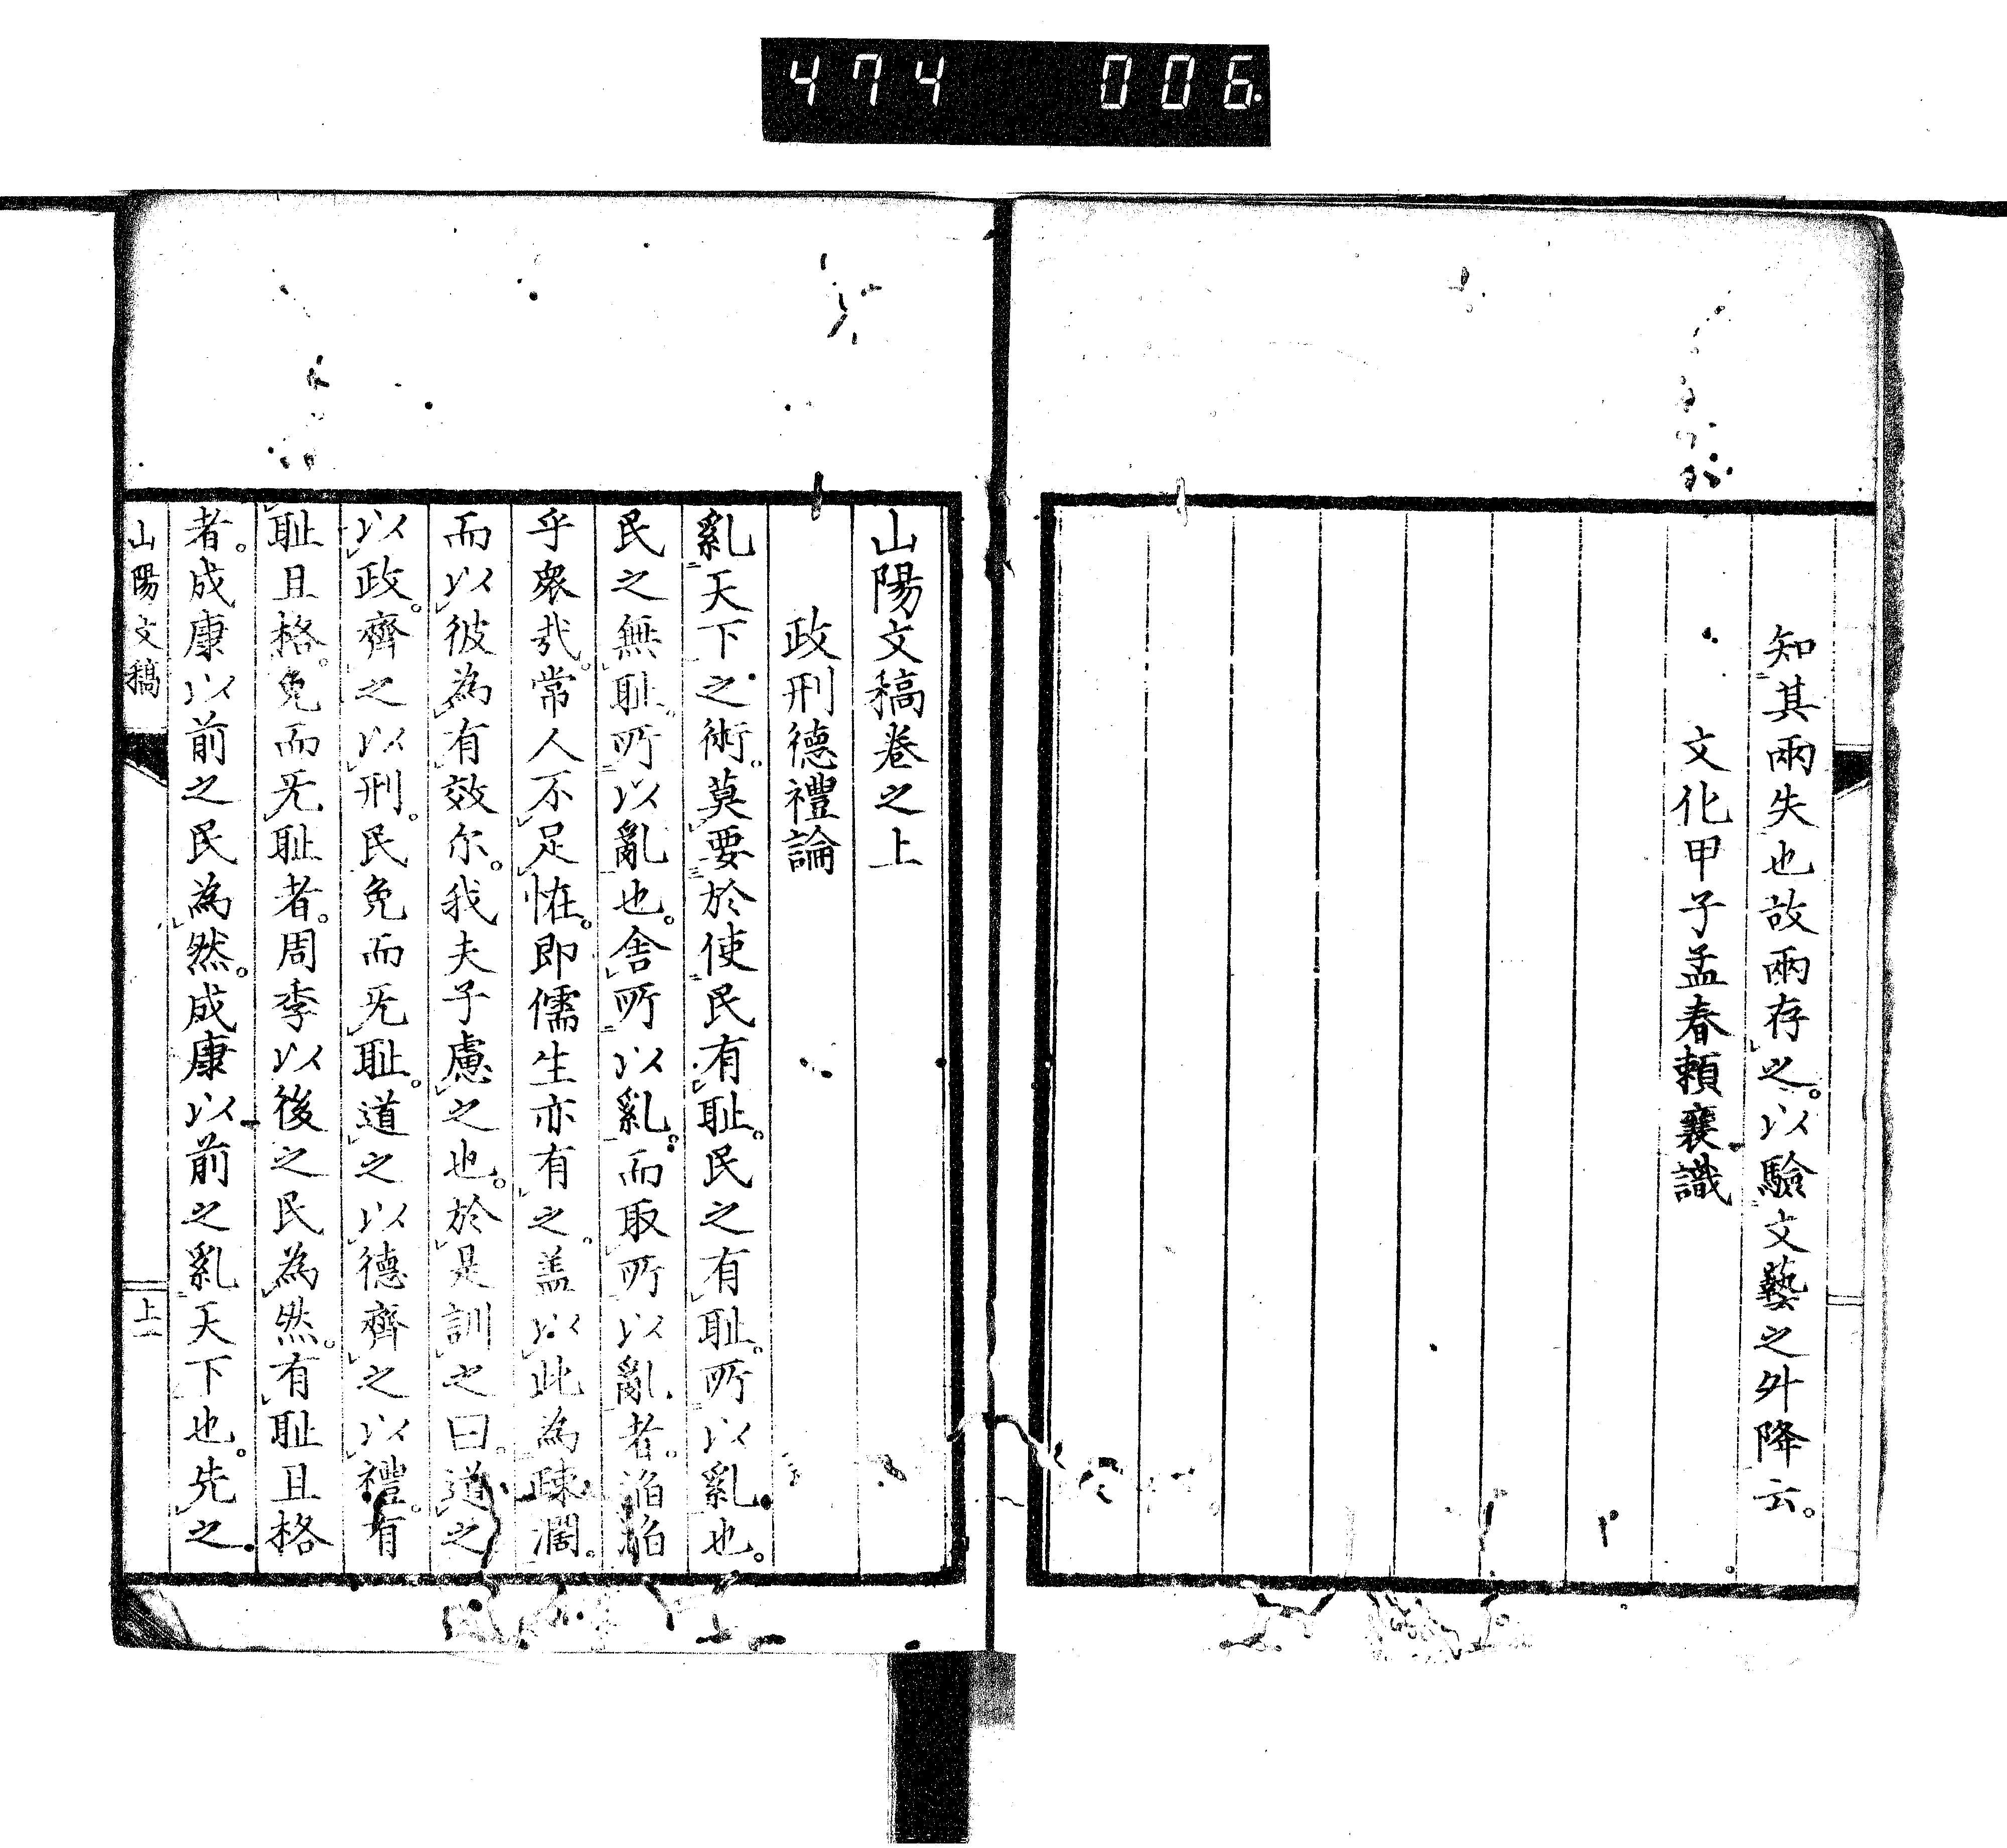 474 006
知其兩失也故兩存之。以驗文藝之外降云。
文化甲子孟春賴襄識
山陽文稿卷之上
政刑德禮論
亂天下之術。莫要於使民有耻。民之有耻。所以亂也。
民之無耻。所以亂也。舍所以亂。而取所以亂者。滔滔
乎衆哉。常人不足恠。即儒生亦有之。盖以此為疎濶。
而以彼為有效尔。我夫子慮之也。於是訓之曰。道之
以政。齊之以刑。民免而无耻。道之以德齊之以禮。有
耻且格。免而无耻者。周季以後之民為然。有耻且格
者。成康以前之民為然。成康以前之亂天下也。先之
山陽文稿
上一